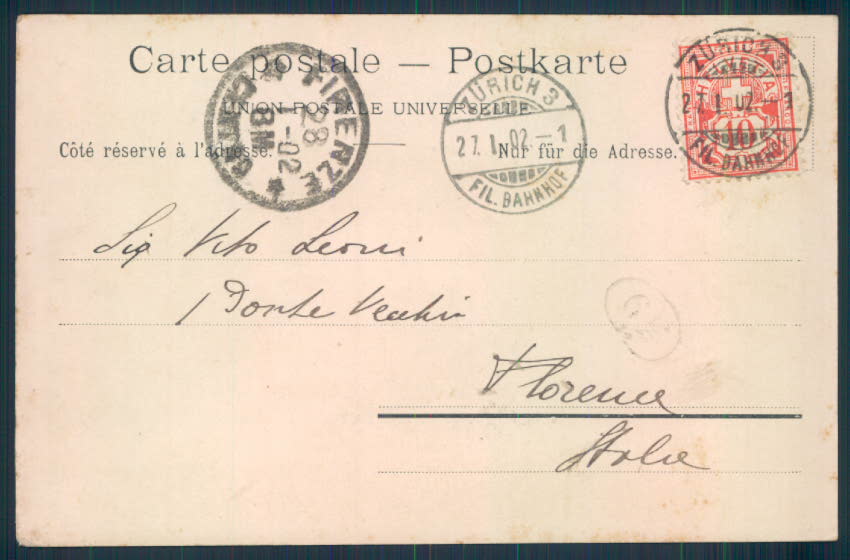 Carte postale — Postkarte
UNION POSTALE UNIVERSELLE
Côté réservé à l'adresse. Nur für die Adresse.
FIRENZE
28
1-02
8M
ZÜRICH 3
27.I.02-1
FIL. BAHNHOF
ZÜRICH 3
27.I.02-1
FIL. BAHNHOF
10
Sig Vito Leoni
1 Ponte Vecchio
Florence
Italie